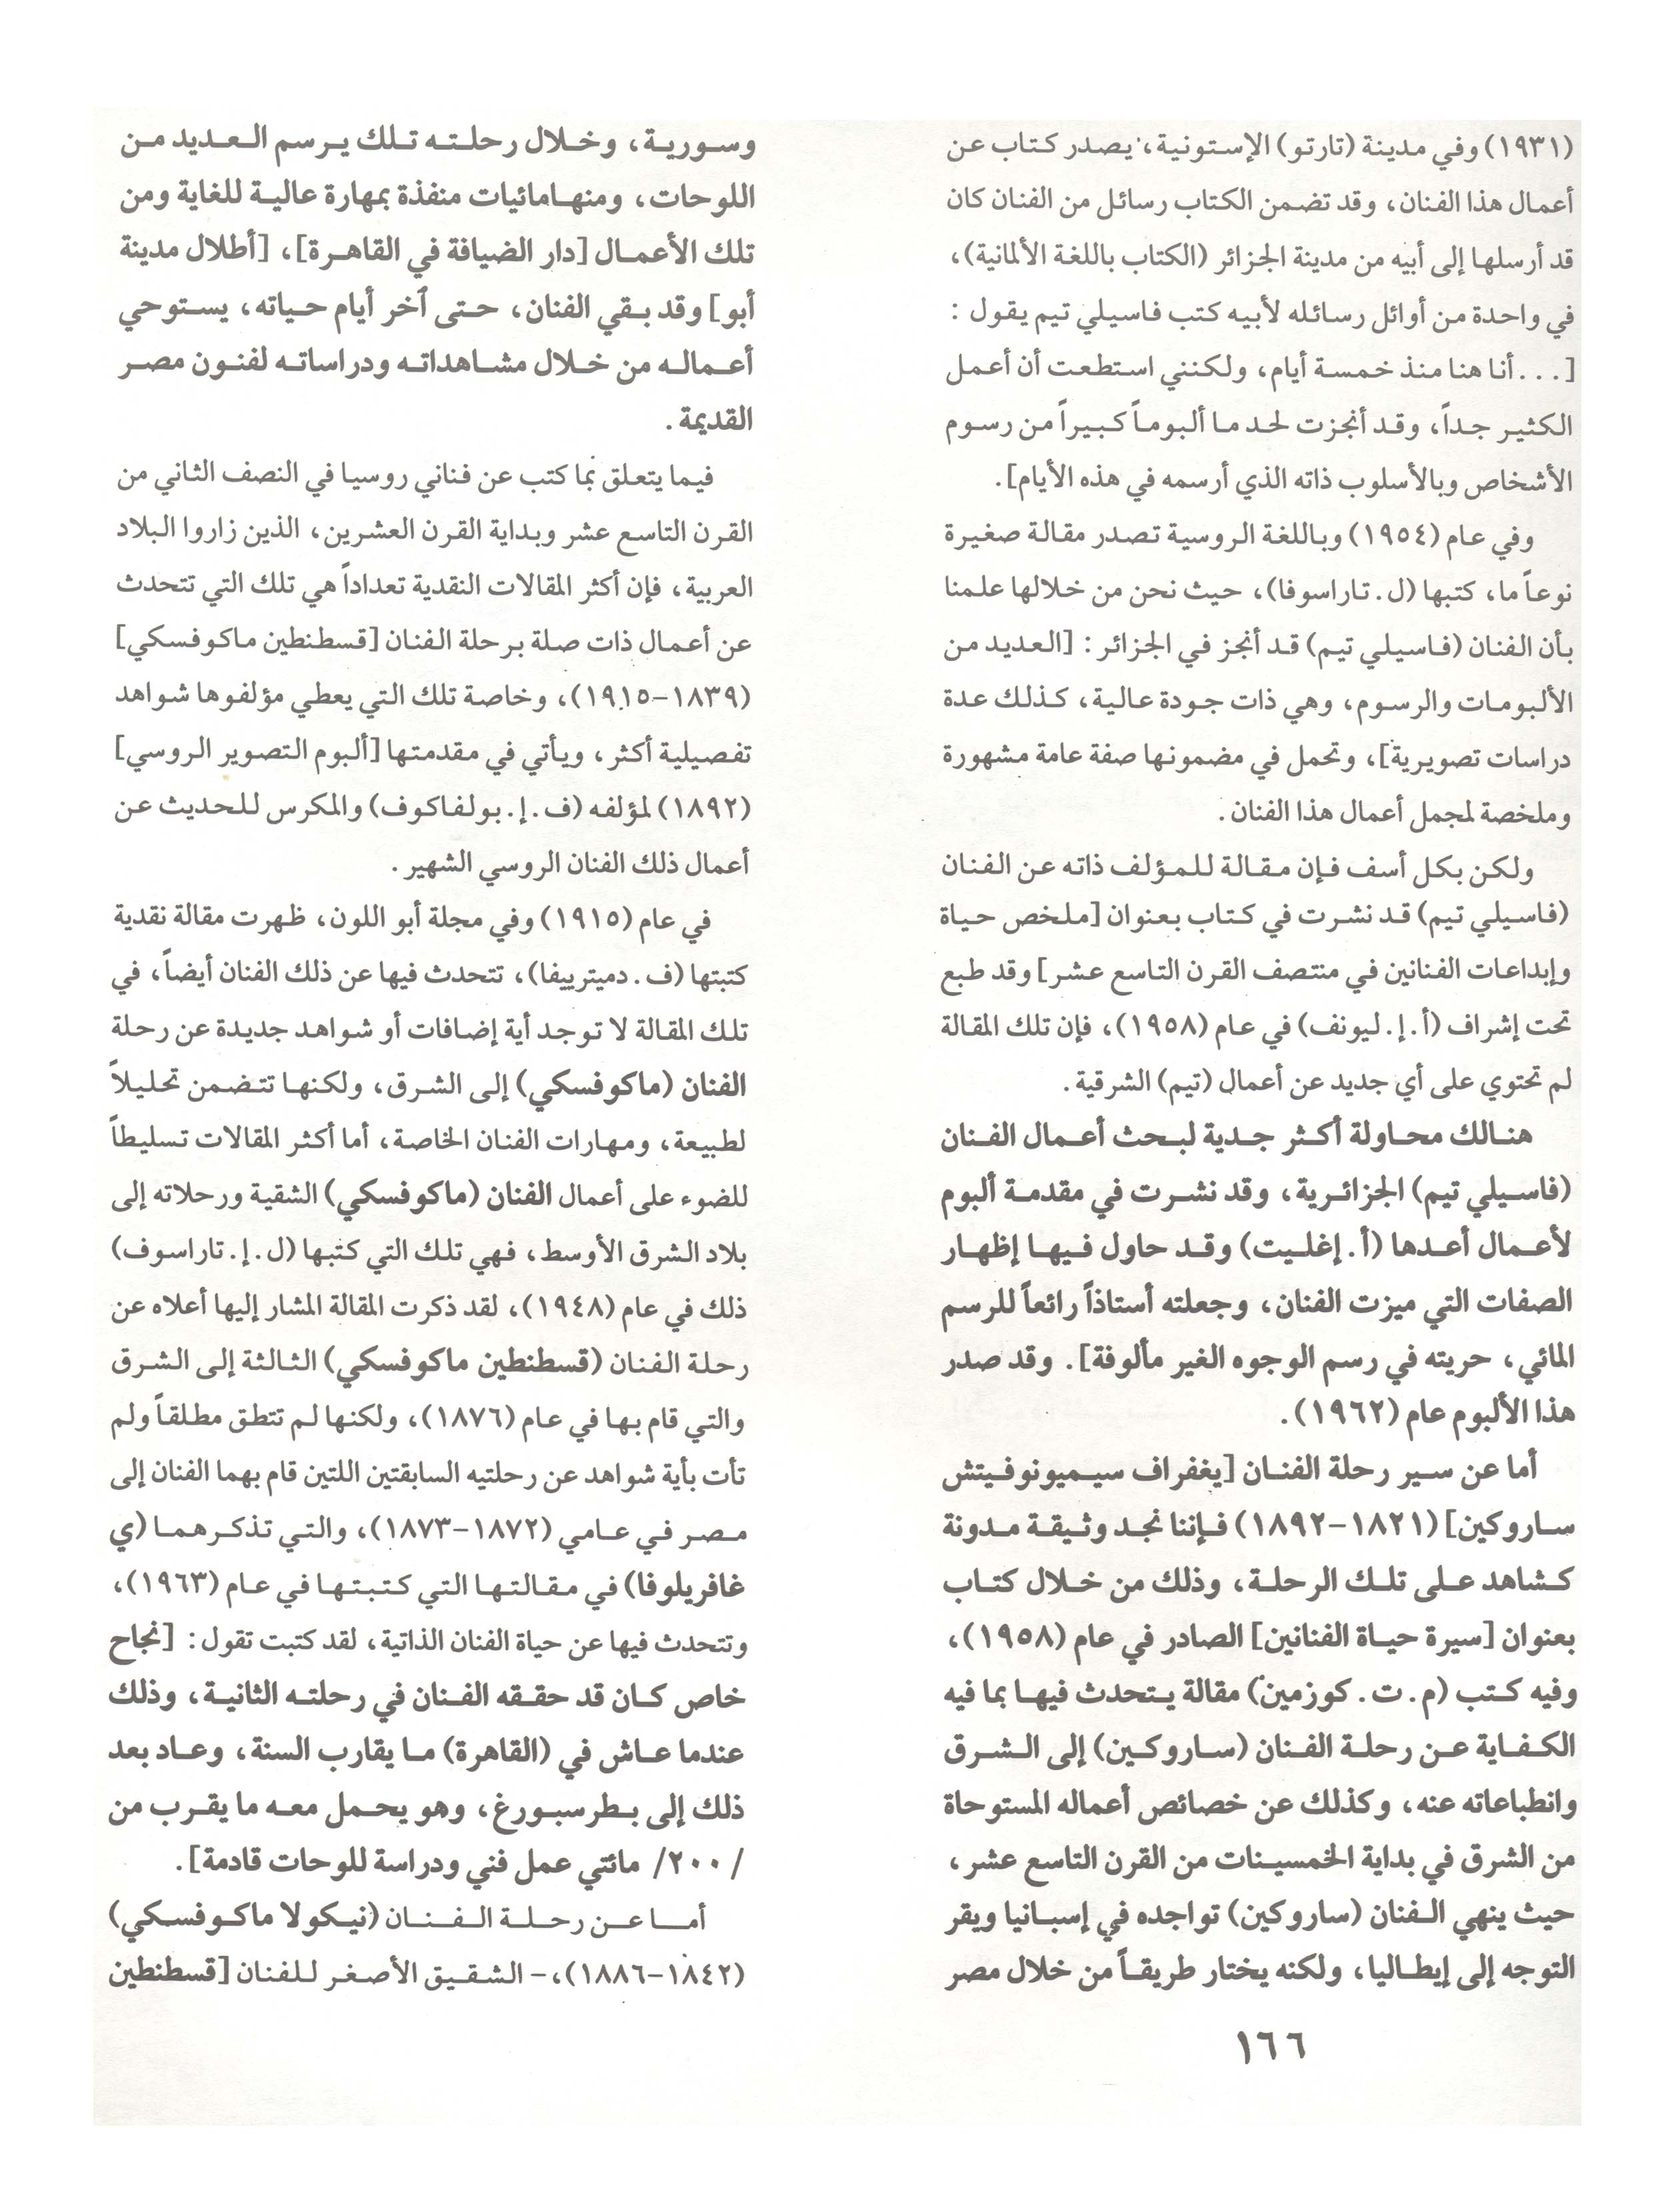 (١٩٣١) وفي مدينة (تارتو) الإستونية، يصدر كتاب عن
أعمال هذا الفنان، وقد تضمن الكتاب رسائل من الفنان كان
قد أرسلها إلى أبيه من مدينة الجزائر (الكتاب باللغة الألمانية)،
في واحدة من أوائل رسائله لأبيه كتب فاسيلي تيم يقول :
[...أنا هنا منذ خمسة أيام، ولكنني استطعت أن أعمل
الكثير جداً، وقد أنجزت لحد ما ألبوماً كبيراً من رسوم
الأشخاص وبالأسلوب ذاته الذي أرسمه في هذه الأيام].
وفي عام (١٩٥٤) وباللغة الروسية تصدر مقالة صغيرة
نوعاً ما، كتبها (ل. تاراسوفا)، حيث نحن من خلالها علمنا
بأن الفنان (فاسيلي تيم) قد أنجز في الجزائر : [العديد من
الألبومات والرسوم، وهي ذات جودة عالية، كذلك عدة
دراسات تصويرية]، وتحمل في مضمونها صفة عامة مشهورة
وملخصة لمجمل أعمال هذا الفنان.
ولكن بكل أسف فإن مقالة للمؤلف ذاته عن الفنان
(فاسيلي تيم) قد نشرت في كتاب بعنوان [ملخص حياة
وإبداعات الفنانين في منتصف القرن التاسع عشر] وقد طبع
تحت إشراف (أ. إ. ليونف) في عام (١٩٥٨)، فإن تلك المقالة
لم تحتوي على أي جديد عن أعمال (تيم) الشرقية.
هنالك محاولة أكثر جدية لبحث أعمال الفنان
(فاسيلي تيم) الجزائرية، وقد نشرت في مقدمة ألبوم
لأعمال أعدها (أ. إغليت) وقد حاول فيها إظهار
الصفات التي ميزت الفنان، وجعلته أستاذاً رائعاً للرسم
المائي، حريته في رسم الوجوه الغير مألوفة]. وقد صدر
هذا الألبوم عام (١٩٦٢).
أما عن سير رحلة الفنان [يغفراف سيميونوفيتش
ساروكين] (١٨٢١-١٨٩٢) فإننا نجد وثيقة مدونة
كشاهد على تلك الرحلة، وذلك من خلال كتاب
بعنوان [سيرة حياة الفنانين] الصادر في عام (١٩٥٨)،
وفيه كتب (م. ت. كوزمين) مقالة يتحدث فيها بما فيه
الكفاية عن رحلة الفنان (ساروكين) إلى الشرق
وانطباعاته عنه، وكذلك عن خصائص أعماله المستوحاة
من الشرق في بداية الخمسينات من القرن التاسع عشر،
حيث ينهي الفنان (ساروكين) تواجده في إسبانيا ويقر
التوجه إلى إيطاليا، ولكنه يختار طريقاً من خلال مصر
وسورية، وخلال رحلته تلك يرسم العديد من
اللوحات، ومنها مائيات منفذة بمهارة عالية للغاية ومن
تلك الأعمال [دار الضيافة في القاهرة]، [أطلال مدينة
أبو] وقد بقي الفنان، حتى آخر أيام حياته، يستوحي
أعماله من خلال مشاهداته ودراساته لفنون مصر
القديمة.
فيما يتعلق بما كتب عن فناني روسيا في النصف الثاني من
القرن التاسع عشر وبداية القرن العشرين، الذين زاروا البلاد
العربية، فإن أكثر المقالات النقدية تعداداً هي تلك التي تتحدث
عن أعمال ذات صلة برحلة الفنان [قسطنطين ماكوفسكي]
(١٨٣٩-١٩١٥)، وخاصة تلك التي يعطي مؤلفوها شواهد
تفصيلية أكثر، ويأتي في مقدمتها [ألبوم التصوير الروسي]
(١٨٩٢) لمؤلفه (ف. إ. بولفاكوف) والمكرس للحديث عن
أعمال ذلك الفنان الروسي الشهير.
في عام (١٩١٥) وفي مجلة أبو اللون، ظهرت مقالة نقدية
كتبتها (ف. دميترييفا)، تتحدث فيها عن ذلك الفنان أيضاً، في
تلك المقالة لا توجد أية إضافات أو شواهد جديدة عن رحلة
الفنان (ماكوفسكي) إلى الشرق، ولكنها تتضمن تحليلاً
لطبيعة، ومهارات الفنان الخاصة، أما أكثر المقالات تسليطاً
للضوء على أعمال الفنان (ماكوفسكي) الشقية ورحلاته إلى
بلاد الشرق الأوسط، فهي تلك التي كتبها (ل. إ. تاراسوف)
ذلك في عام (١٩٤٨)، لقد ذكرت المقالة المشار إليها أعلاه عن
رحلة الفنان (قسطنطين ماكوفسكي) الثالثة إلى الشرق
والتي قام بها في عام (١٨٧٦)، ولكنها لم تتطق مطلقاً ولم
تأت بأية شواهد عن رحلتيه السابقتين اللتين قام بهما الفنان إلى
مصر في عامي (١٨٧٢-١٨٧٣)، والتي تذكرهما (ي
غافريلوفا) في مقالتها التي كتبتها في عام (١٩٦٣)،
وتتحدث فيها عن حياة الفنان الذاتية، لقد كتبت تقول : [نجاح
خاص كان قد حققه الفنان في رحلته الثانية، وذلك
عندما عاش في (القاهرة) ما يقارب السنة، وعاد بعد
ذلك إلى بطرسبورغ، وهو يحمل معه ما يقرب من
/ ٢٠٠/ مائتي عمل فني ودراسة للوحات قادمة].
أما عن رحلة الفنان (نيكولا ماكوفسكي)
(١٨٤٢-١٨٨٦)،- الشقيق الأصغر للفنان [قسطنطين
١٦٦